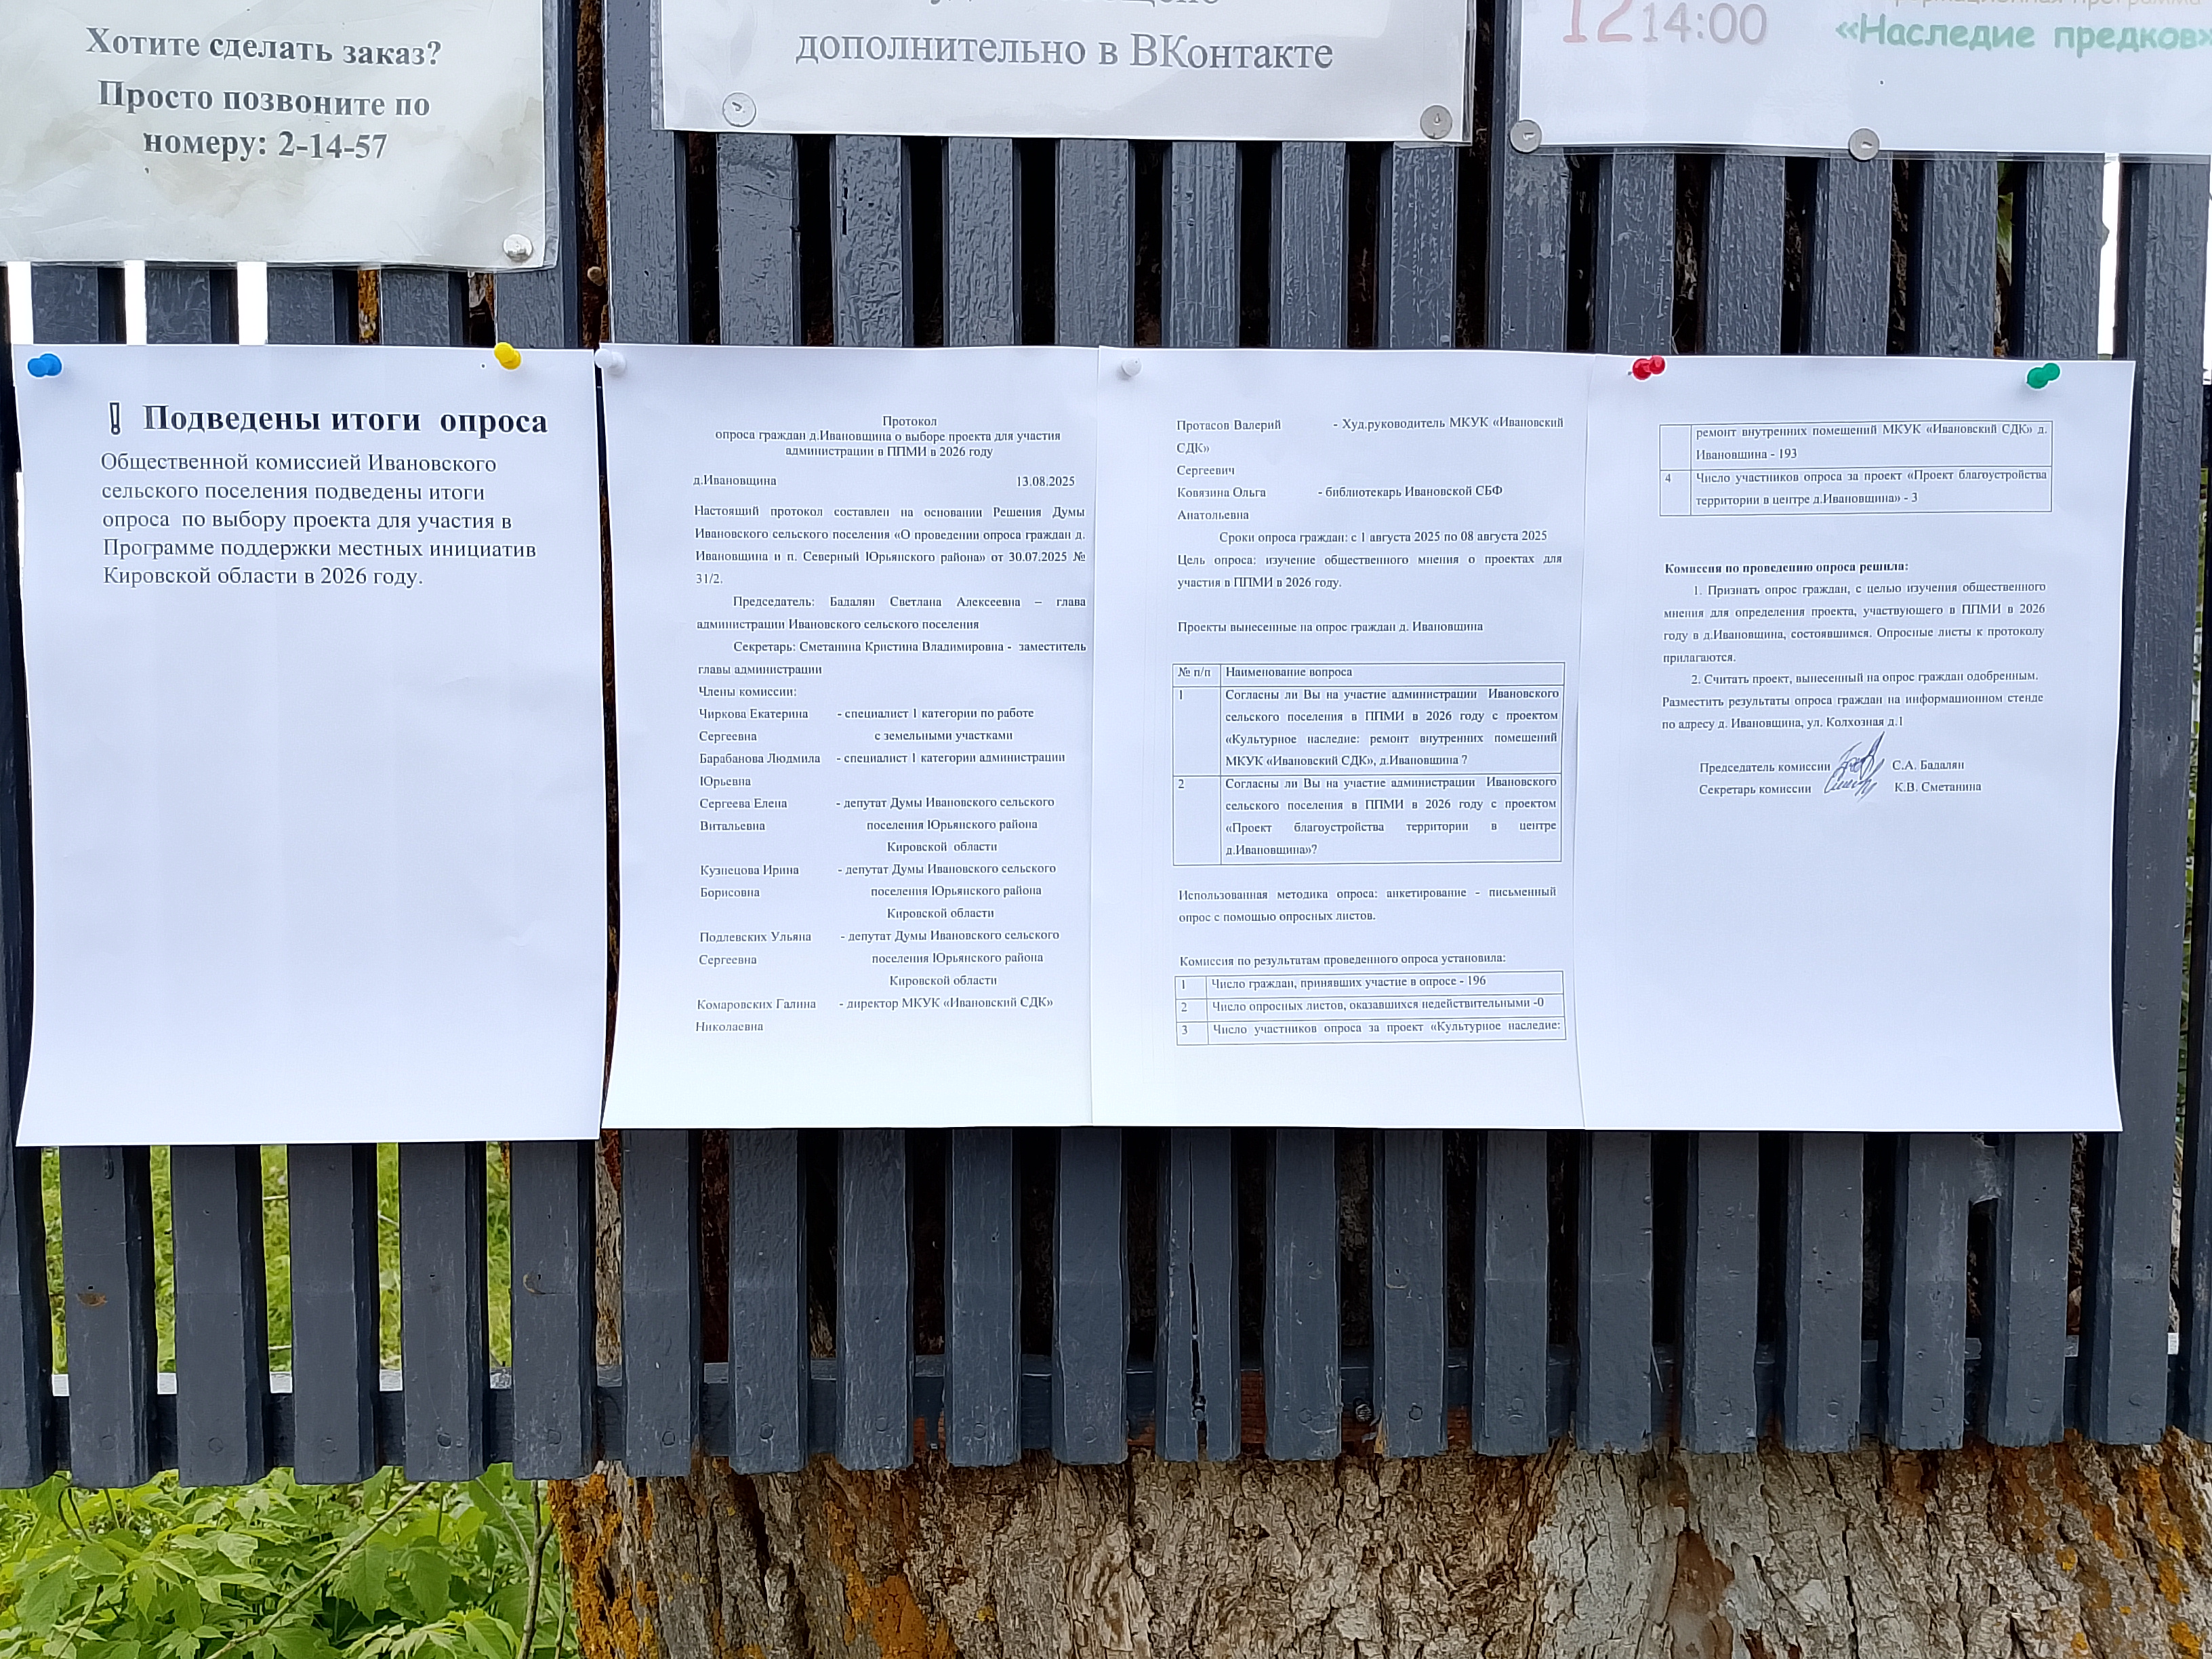 Хотите сделать заказ?
Просто позвоните по
номеру: 2-14-57
дополнительно в ВКонтакте
12 14:00
«Наследие предков»
! Подведены итоги опроса
Общественной комиссией Ивановского
сельского поселения подведены итоги
опроса по выбору проекта для участия в
Программе поддержки местных инициатив
Кировской области в 2026 году.
Протокол
опроса граждан д.Ивановщина о выборе проекта для участия
администрации в ППМИ в 2026 году
д.Ивановщина 13.08.2025
Настоящий протокол составлен на основании Решения Думы
Ивановского сельского поселения «О проведении опроса граждан д.
Ивановщина и п. Северный Юрьянского района» от 30.07.2025 №
31/2.
Председатель: Бадалян Светлана Алексеевна – глава
администрации Ивановского сельского поселения
Секретарь: Сметанина Кристина Владимировна - заместитель
главы администрации
Члены комиссии:
Чиркова Екатерина - специалист 1 категории по работе
Сергеевна с земельными участками
Барабанова Людмила - специалист 1 категории администрации
Юрьевна
Сергеева Елена - депутат Думы Ивановского сельского
Витальевна поселения Юрьянского района
Кировской области
Кузнецова Ирина - депутат Думы Ивановского сельского
Борисовна поселения Юрьянского района
Кировской области
Подлевских Ульяна - депутат Думы Ивановского сельского
Сергеевна поселения Юрьянского района
Кировской области
Комаровских Галина - директор МКУК «Ивановский СДК»
Николаевна
Протасов Валерий - Худ.руководитель МКУК «Ивановский
СДК»
Сергеевич
Ковязина Ольга - библиотекарь Ивановской СБФ
Анатольевна
Сроки опроса граждан: с 1 августа 2025 по 08 августа 2025
Цель опроса: изучение общественного мнения о проектах для
участия в ППМИ в 2026 году.
Проекты вынесенные на опрос граждан д. Ивановщина
№ п/п Наименование вопроса
1 Согласны ли Вы на участие администрации Ивановского
сельского поселения в ППМИ в 2026 году с проектом
«Культурное наследие: ремонт внутренних помещений
МКУК «Ивановский СДК», д.Ивановщина ?
2 Согласны ли Вы на участие администрации Ивановского
сельского поселения в ППМИ в 2026 году с проектом
«Проект благоустройства территории в центре
д.Ивановщина»?
Использованная методика опроса: анкетирование - письменный
опрос с помощью опросных листов.
Комиссия по результатам проведенного опроса установила:
1 Число граждан, принявших участие в опросе - 196
2 Число опросных листов, оказавшихся недействительными -0
3 Число участников опроса за проект «Культурное наследие:
ремонт внутренних помещений МКУК «Ивановский СДК» д.
Ивановщина - 193
4 Число участников опроса за проект «Проект благоустройства
территории в центре д.Ивановщина» - 3
Комиссия по проведению опроса решила:
1. Признать опрос граждан, с целью изучения общественного
мнения для определения проекта, участвующего в ППМИ в 2026
году в д.Ивановщина, состоявшимся. Опросные листы к протоколу
прилагаются.
2. Считать проект, вынесенный на опрос граждан одобренным.
Разместить результаты опроса граждан на информационном стенде
по адресу д. Ивановщина, ул. Колхозная д.1
Председатель комиссии С.А. Бадалян
Секретарь комиссии К.В. Сметанина